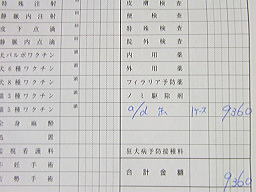 特殊注射
静脈内注射
皮下点滴
静脈内点滴
犬パルボワクチン
犬6種ワクチン
犬8種ワクチン
猫3種ワクチン
猫5種ワクチン
全身麻酔
処置
監視看護料
不妊手術
去勢手術
皮膚検査
便検査
特殊検査
院外検査
内用薬
外用薬
フィラリア予防薬
ノミ駆除剤
a/d 缶 1ケース 9360
狂犬病予防接種料
合計金額
9360